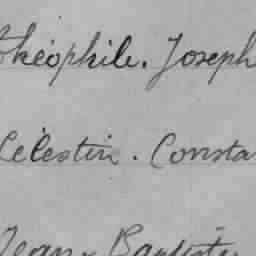 théophile. Joseph
Célestin. Consta
Jean, Baptiste